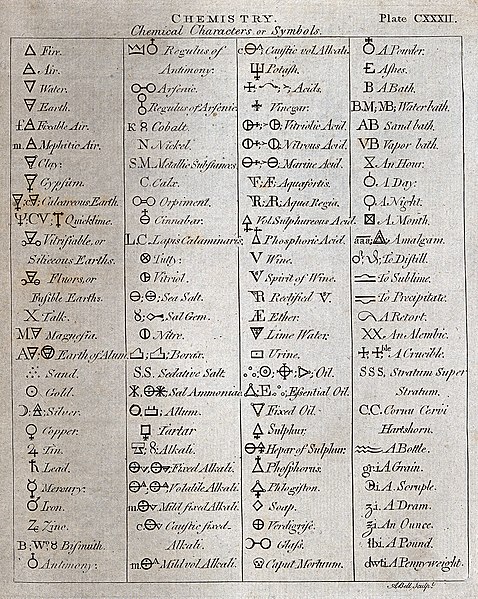 CHEMISTRY.
Plate CXXXII.
Chemical Characters, or Symbols.
Fire.
Air.
Water.
Earth.
f Fixable Air.
m. Mephitic Air.
Clay.
Gypsum.
Calcareous Earth.
CV; Quicklime.
Vitrifiable, or
Siliceous Earths.
Fluors, or
Fusible Earths.
X Talk.
M Magnesia.
A Earth of Alum.
Sand.
Gold.
Silver.
Copper.
Tin.
Lead.
Mercury.
Iron.
Z Zinc.
B; W; Bismuth.
Antimony.
Regulus of
Antimony.
Arsenic.
Regulus of Arsenic.
K Cobalt.
N. Nickel.
S.M. Metallic Substances.
C. Calx.
Orpiment.
Cinnabar.
L.C. Lapis Calaminaris.
Tutty.
Vitriol.
Sea Salt.
Sal Gem.
Nitre.
Borax.
S.S. Sedative Salt.
Sal Ammoniac.
Allum.
Tartar
Alkali.
Fixed Alkali.
Volatile Alkali.
m Mild fixed Alkali.
c Caustic fixed
Alkali.
m Mild vol. Alkali.
c Caustic vol. Alkali.
Potash.
Acids.
Vinegar.
Vitriolic Acid.
Nitrous Acid.
Marine Acid.
Aquafortis.
Aqua Regia.
Vol. Sulphureous Acid.
Phosphoric Acid.
V Wine.
Spirit of Wine.
Rectified V.
Æ Ether.
Lime Water.
Urine.
Essential Oil.
Fixed Oil.
Sulphur.
Hepar of Sulphur.
Phosphorus.
Phlogiston.
Soap.
Verdigrise.
Glass.
Caput Mortuum.
A Powder.
E Ashes.
B A Bath.
B.M; MB; Water bath.
AB Sand bath.
VB Vapor bath.
X An Hour.
A Day.
A Night.
A Month.
aaa; Amalgam.
To Distill.
To Sublime.
To Precipitate.
A Retort.
XX. An Alembic.
A Crucible.
SSS, Stratum Super
Stratum.
C.C. Cornu Cervi
Hartshorn.
A Bottle.
gr.i A Grain.
℈i. A Scruple.
ʒi. A Dram.
An Ounce.
℔i. A Pound.
dwt.i A Pennyweight.
A. Bell Sculp.t